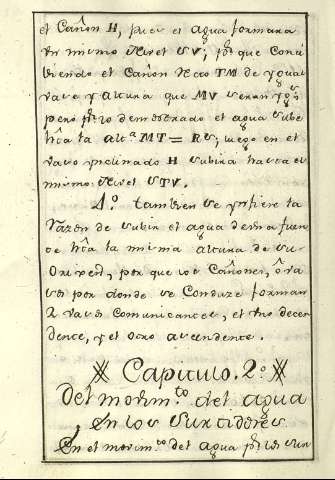 el Cañon H, pues el agua formara
un mismo Nivel SV; p.r que conci
biendo el Cañon recto TM de ygual
vaso y altura que MV seran yg.s
pero p.r lo demostrado el agua sube
h.ta la alt.a MT = RS; luego en el
vaso ynclinado H subira hasta el
mismo Nivel STV.
4.o tambien se ynfiere la
Razon de subir el agua de una fuen
te h.ta la misma altura de su
Orixen, por que los Cañones, ô va
sos por donde se Conduze forman
2 vasos Comunicantes, el uno decen
dente, y el otro acendente.
Capitulo. 2.o
Del movim.to del agua
en los Surtidores
En el movim.to del agua p.r los sur